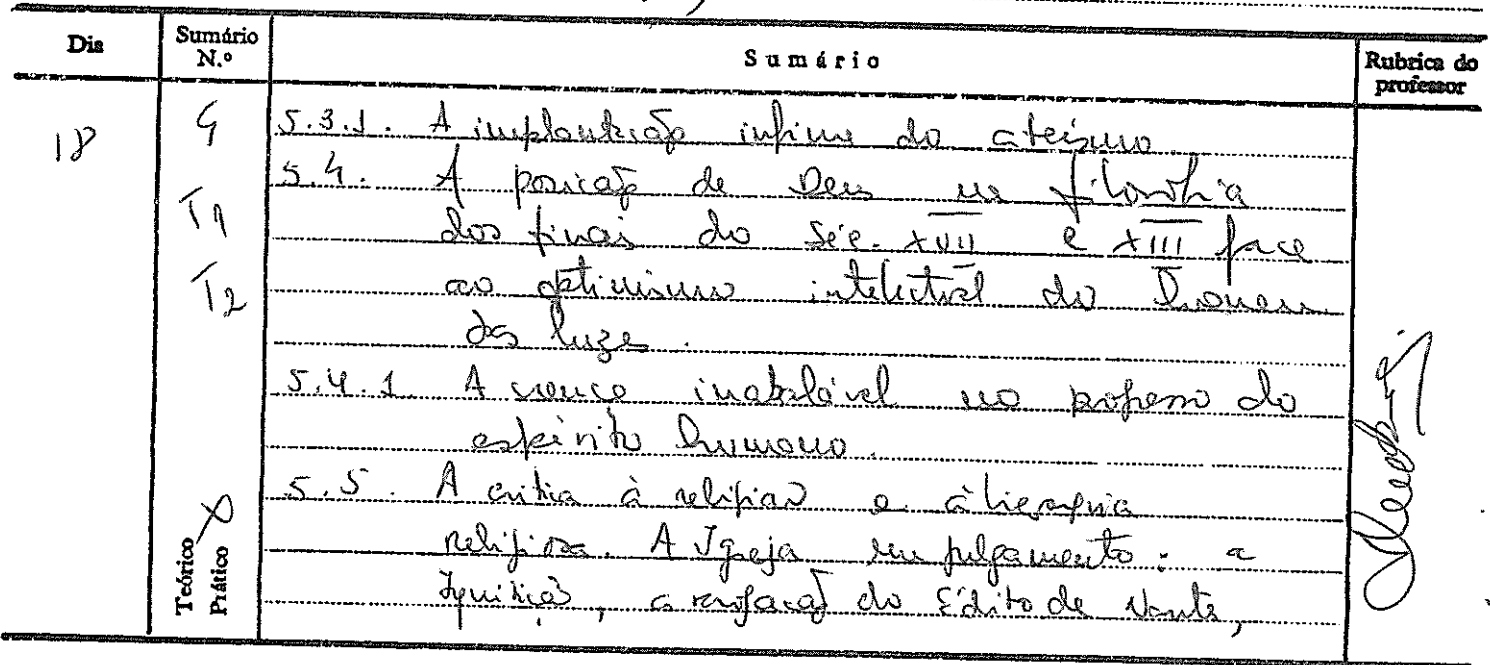 Dia
Sumário N.º
Sumário
Rubrica do professor
18
T1
T2
Teórico
Prático
5.3.1. A implantação do ateísmo
5.4. A posição de Deus na filosofia
dos finais do Séc. XVII e XIII face
ao optimismo intelectual do Homem
das luzes.
5.4.1 A crença inabalável no progresso do
espírito humano.
5.5. A crítica à religião e à hierarquia
religiosa. A Igreja em julgamento: a
Inquisição, a revogação do Édito de Nantes,